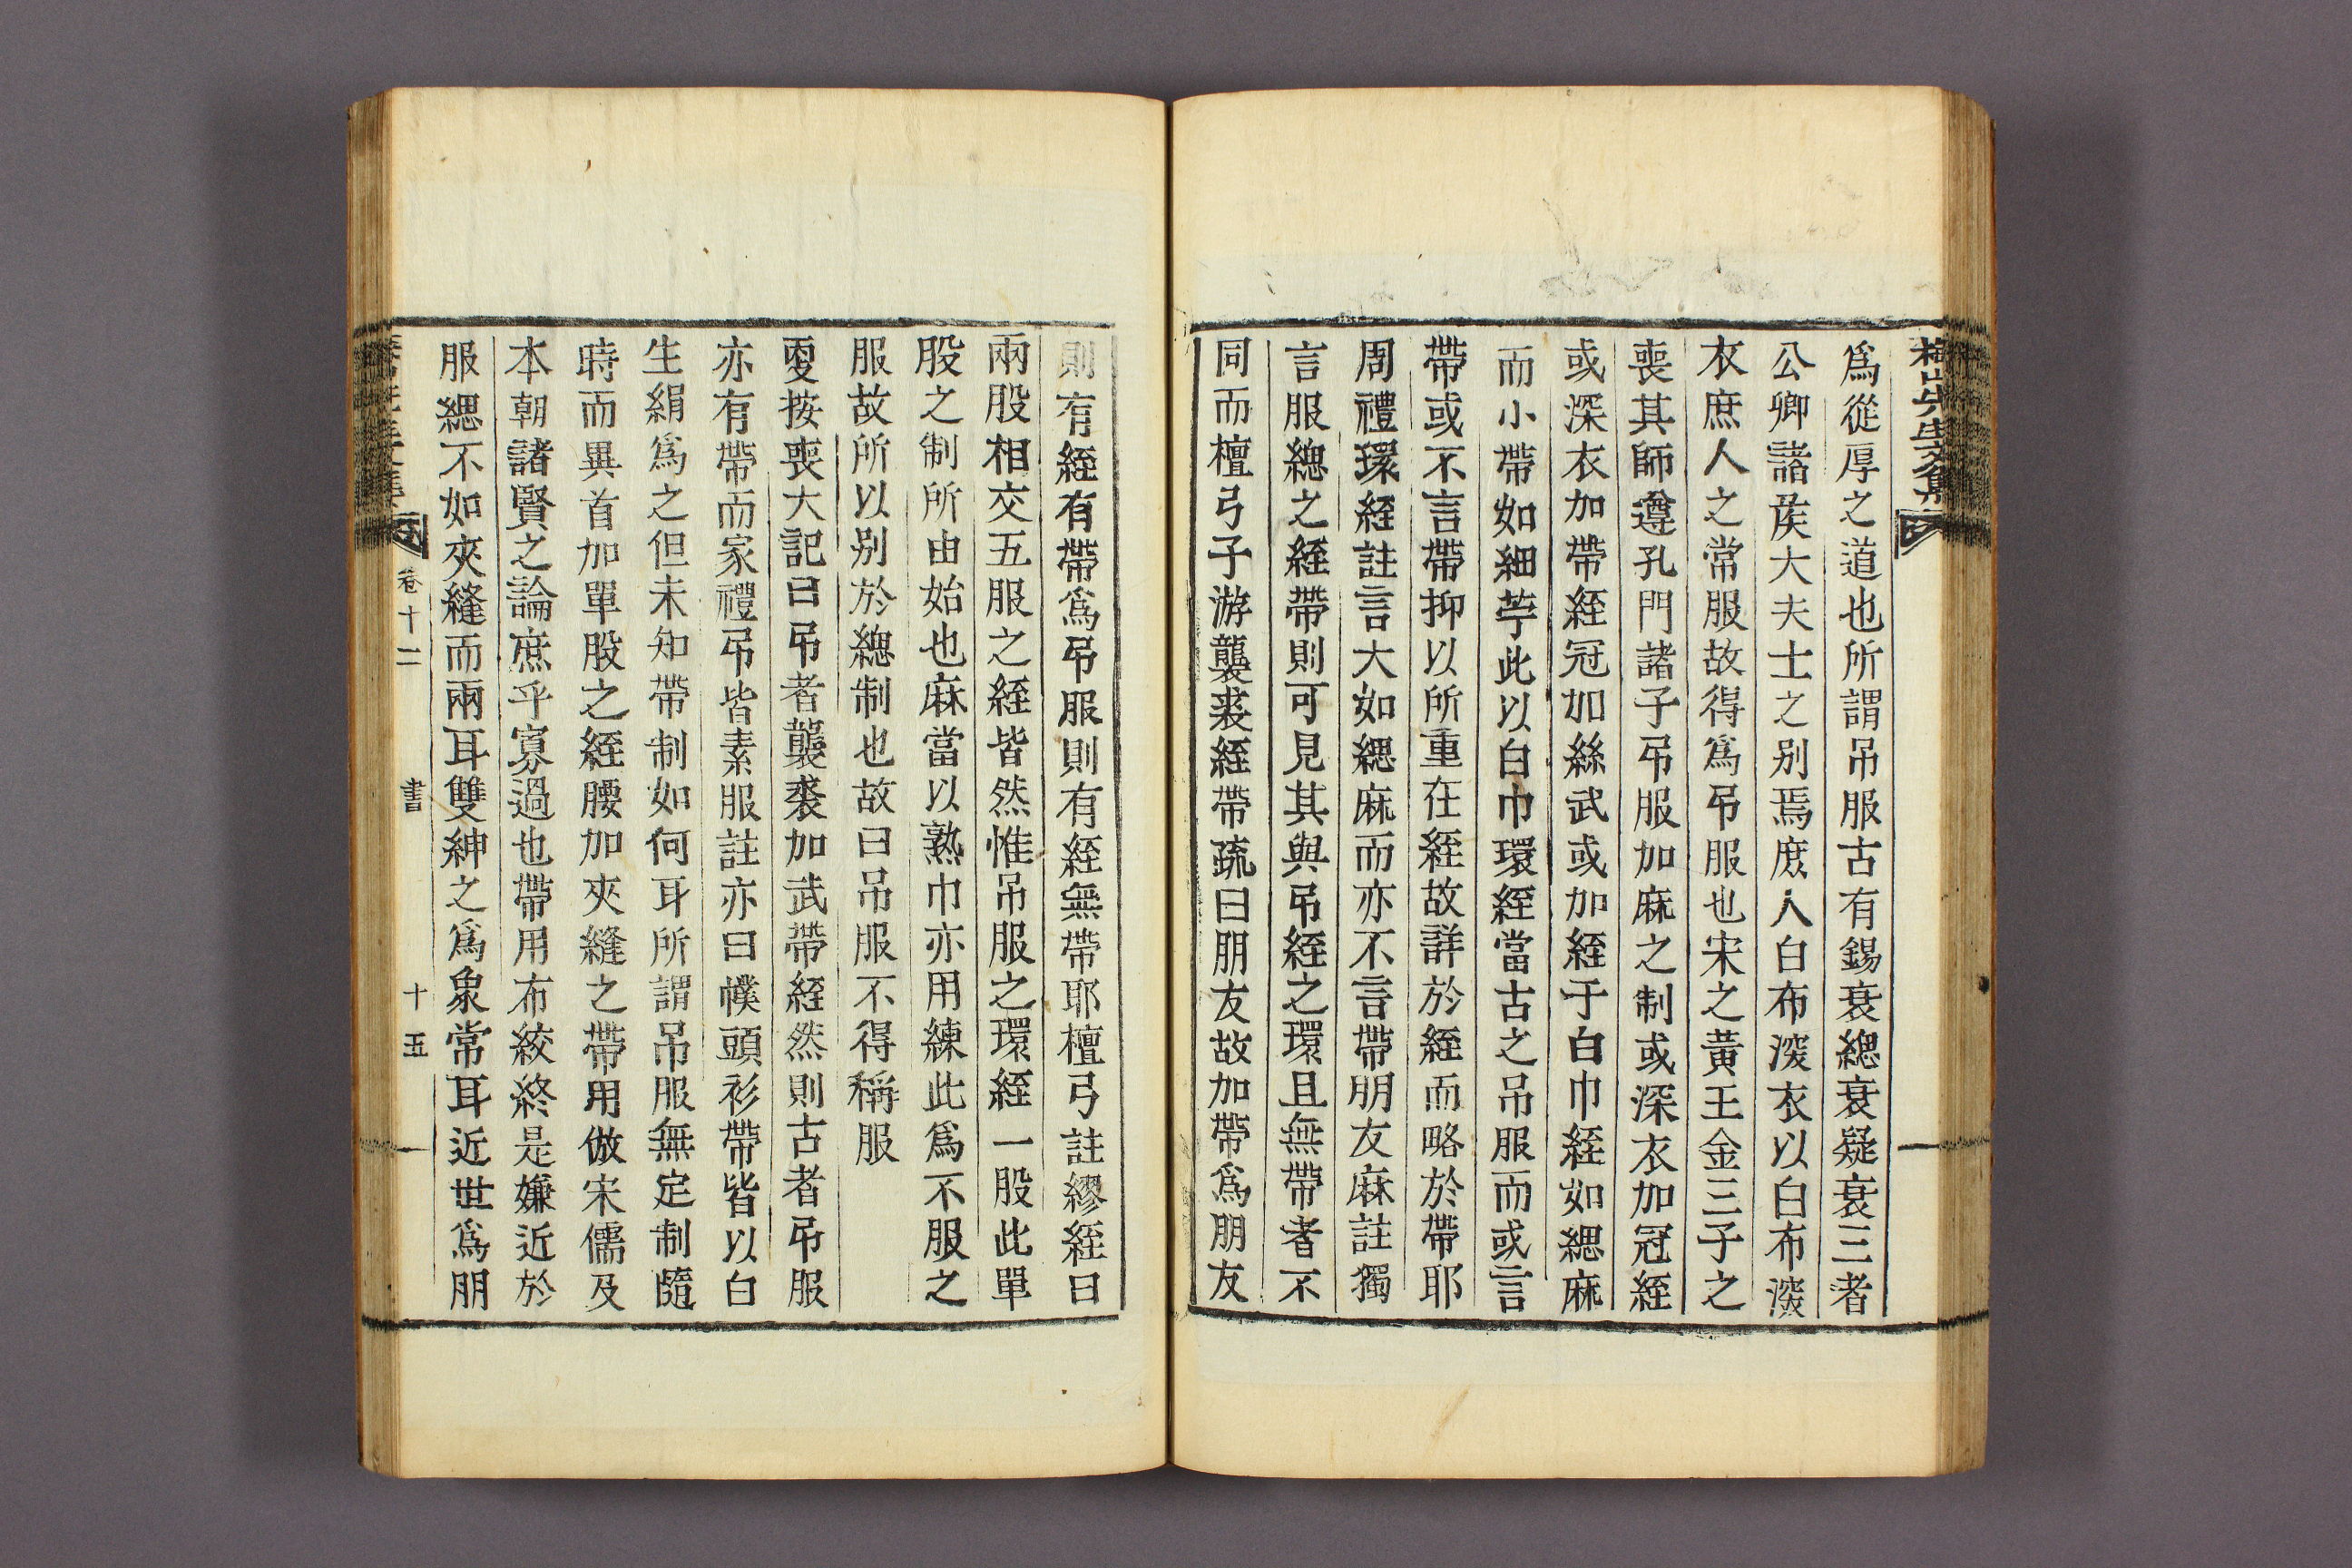 梅山先生文集
爲從厚之道也所謂吊服古有錫衰緦衰疑衰三者
公卿諸矦大夫士之别焉庶人白布深衣以白布深
衣庶人之常服故得爲吊服也宋之黃王金三子之
喪其師遵孔門諸子吊服加麻之制或深衣加冠絰
或深衣加帶絰冠加絲武或加絰于白巾絰如緦麻
而小帶如細苧此以白巾環絰當古之吊服而或言
帶或不言帶抑以所重在絰故詳於絰而略於帶耶
周禮環絰註言大如緦麻而亦不言帶朋友麻註獨
言服緦之絰帶則可見其與吊絰之環且無帶者不
同而檀弓子游襲裘絰帶疏曰朋友故加帶爲朋友
則有絰有帶爲吊服則有絰無帶耶檀弓註繆絰曰
兩股相交五服之絰皆然惟吊服之環絰一股此單
股之制所由始也麻當以熟巾亦用練此爲不服之
服故所以别於緦制也故曰吊服不得稱服
更按喪大記曰吊者襲裘加武帶絰然則古者吊服
亦有帶而家禮吊皆素服註亦曰幞頭衫帶皆以白
生絹爲之但未知帶制如何耳所謂吊服無定制隨
時而異首加單股之絰腰加夾縫之帶用倣宋儒及
本朝諸賢之論庶乎寡過也帶用布絞終是嫌近於
服緦不如夾縫而兩耳雙紳之爲象常耳近世爲朋
卷十二
書
十五